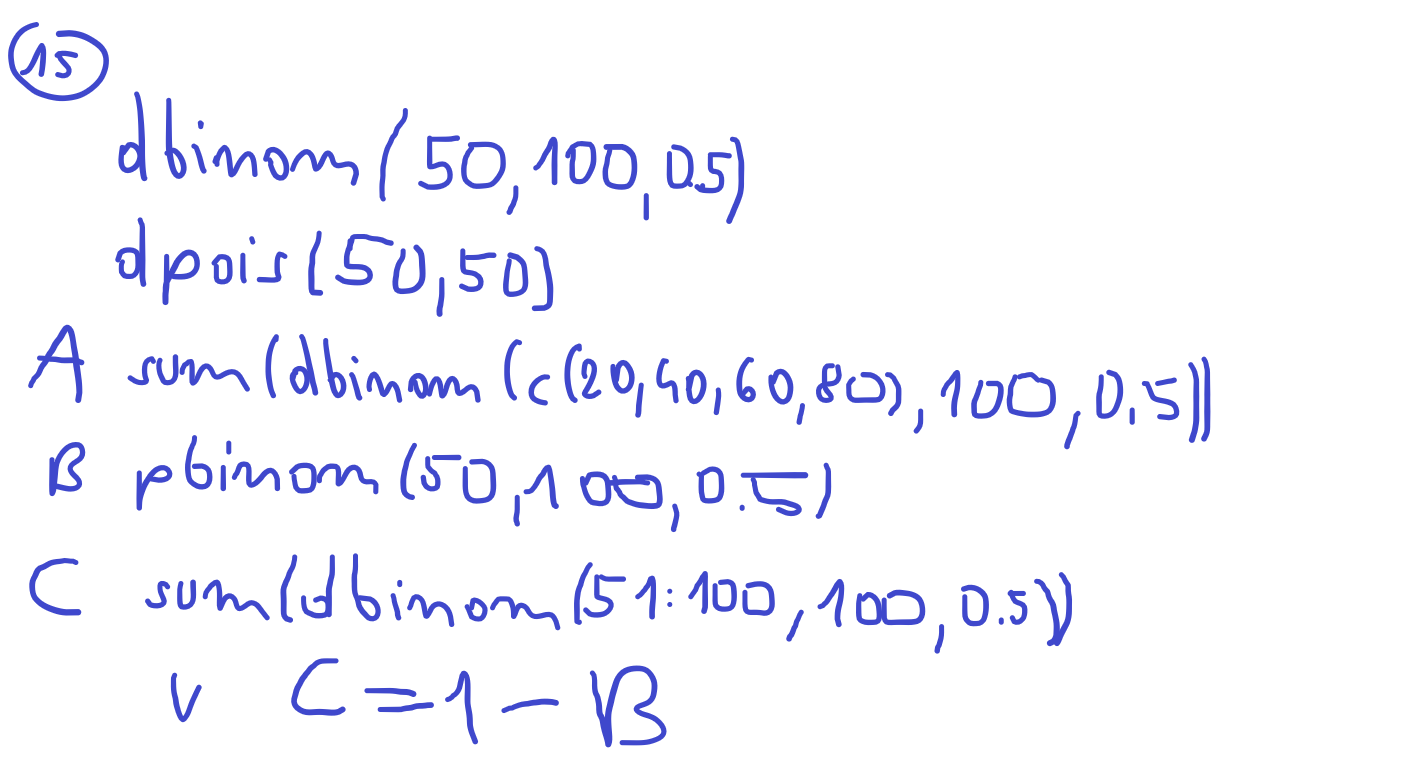 15
dbinom(50,100,0.5)
dpois(50,50)
A sum(dbinom(c(20,40,60,80),100,0.5))
B pbinom(50,100,0.5)
C sum(dbinom(51:100,100,0.5))
v C=1-B